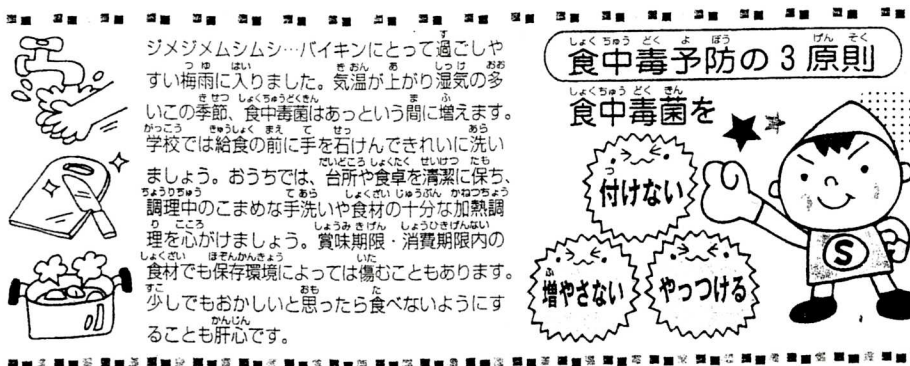 ジメジメムシムシ…バイキンにとって過ごしや
すい梅雨に入りました。気温が上がり湿気の多
いこの季節、食中毒菌はあっという間に増えます。
学校では給食の前に手を石けんできれいに洗い
ましょう。おうちでは、台所や食卓を清潔に保ち、
調理中のこまめな手洗いや食材の十分な加熱調
理を心がけましょう。賞味期限・消費期限内の
食材でも保存環境によっては傷むこともあります。
少しでもおかしいと思ったら食べないようにす
ることも肝心です。
食中毒予防の3原則
食中毒菌を
付けない
増やさない
やっつける
S